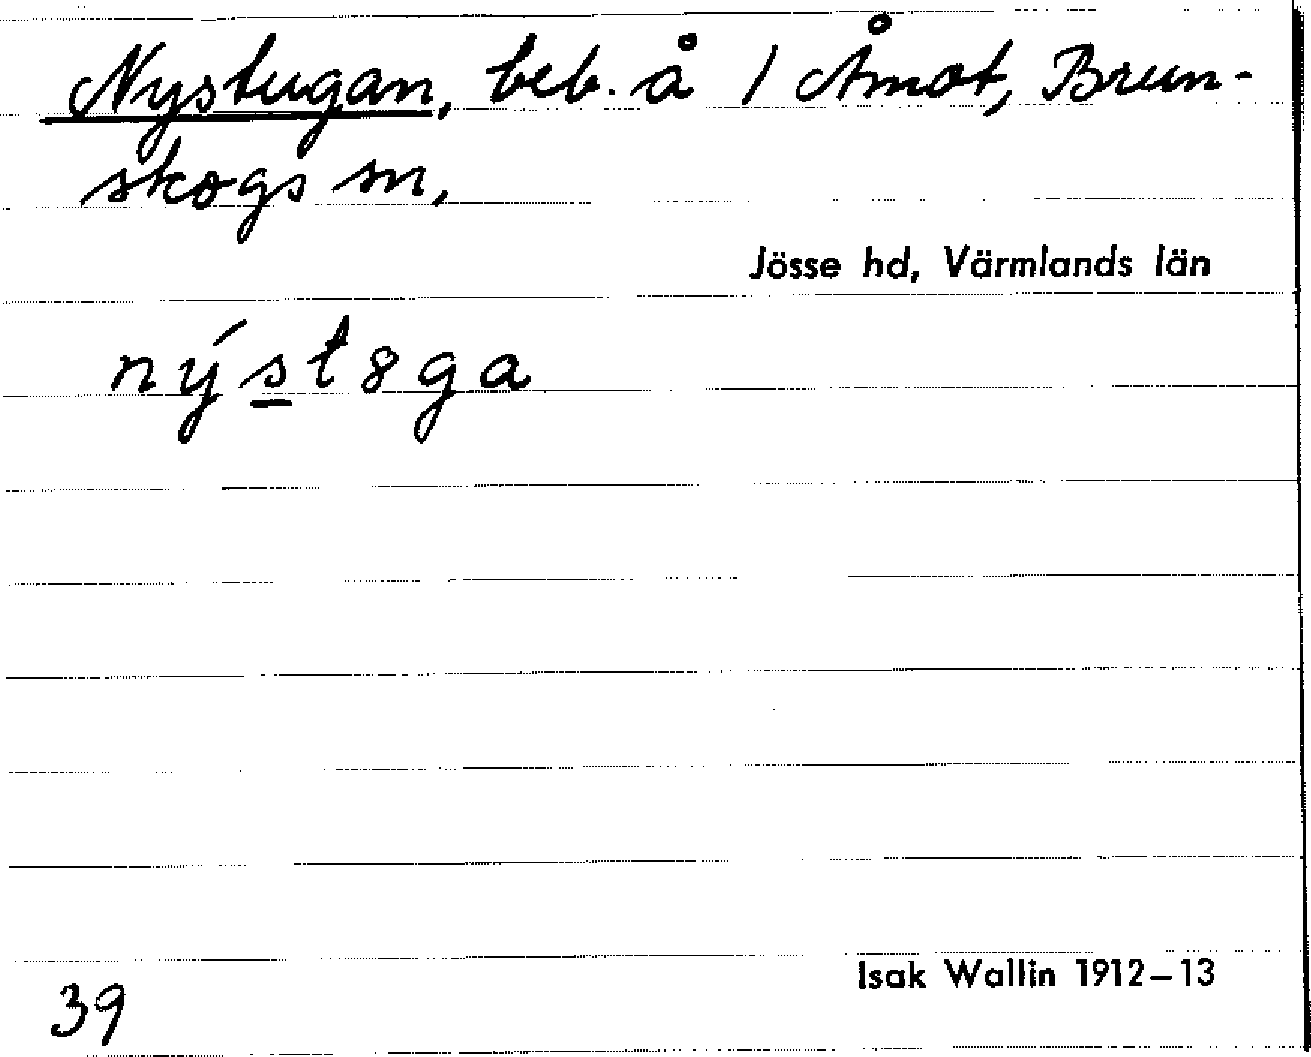 Nystugan, beb. å 1 Åmot, Brun-
skogs sn,
Jösse hd, Värmlands län
nýst8ga
Isak Wallin 1912–13
39